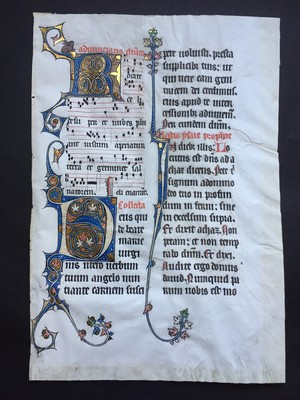 adnunciatio dnica
Rorate
celi
desuper et nubes plu
ant iustum aperiatur
terra et germinet sal
vatorem. Celi enarrant
Collecta
Deus qui
de beate
marie
virgi
nis utero verbum
tuum angelo nun
ciante carnem susci
pere voluisti. presta
supplicibus tuis: ut
qui vere eam geni
tricem dei credimus.
eius apud te inter
cessionibus adiuvem.
Per eundem dnm.
Lectio ysaie prophete
In dieb illis: Lo
cutus est dns ad a
chaz dicens. Pete
signum a domino
deo tuo in profun
dum inferni: sive
in excelsum supra.
Et dixit achaz. Non
petam: et non temp
tabo dnm. Et dixit.
Audite ergo domus
david. Nunquid pa
rum vobis est mo